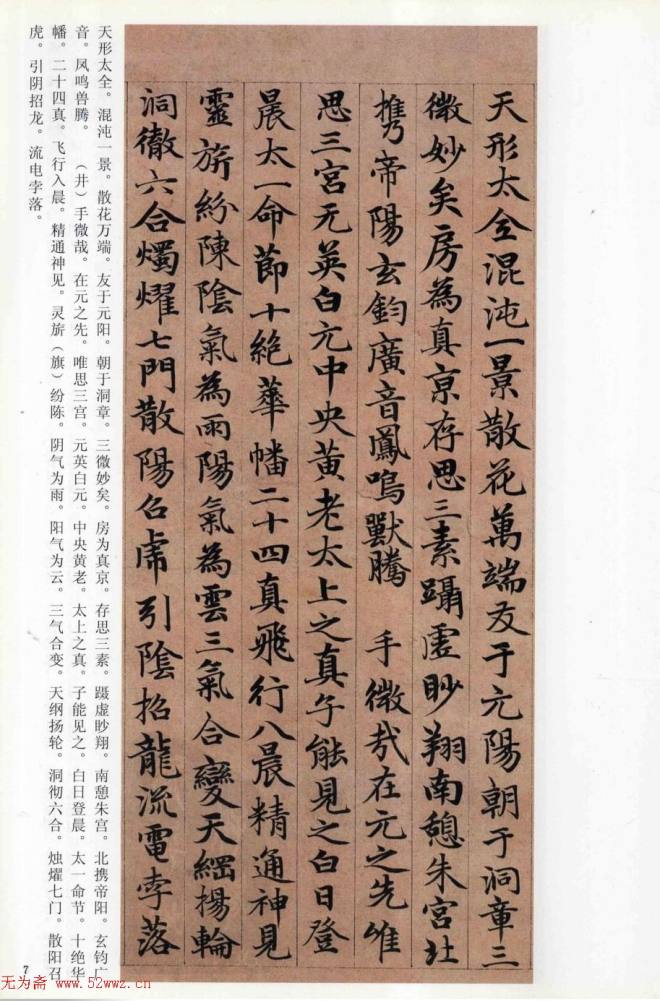 天形太全混沌一景散花萬端友于元陽朝于洞章三
微妙矣房為真京存思三素躡虛眇翔南憩朱宮北
携帝陽玄鈞廣音鳳鳴獸騰 手微哉在元之先唯
思三宮元英白元中央黃老太上之真子能見之白日登
晨太一命節十絕華幡二十四真飛行八晨精通神見
靈旂紛陳陰氣為雨陽氣為雲三氣合變天綱揚輪
洞徹六合燭燿七門散陽召虎引陰招龍流電孛落
天形太全。混沌一景。散花万端。友于元阳。朝于洞章。三微妙矣。房为真京。存思三素。蹑虚眇翔。南憩朱宫。北携帝阳。玄钧广
音。凤鸣兽腾。（井）手微哉。在元之先。唯思三宫。元英白元。中央黄老。太上之真。子能见之。白日登晨。太一命节。十绝华
幡。二十四真。飞行入晨。精通神见。灵旂（旗）纷陈。阴气为雨。阳气为云。三气合变。天纲扬轮。洞彻六合。烛燿七门。散阳召
虎。引阴招龙。流电孛落。
7
无为斋 www.52wwz.cn